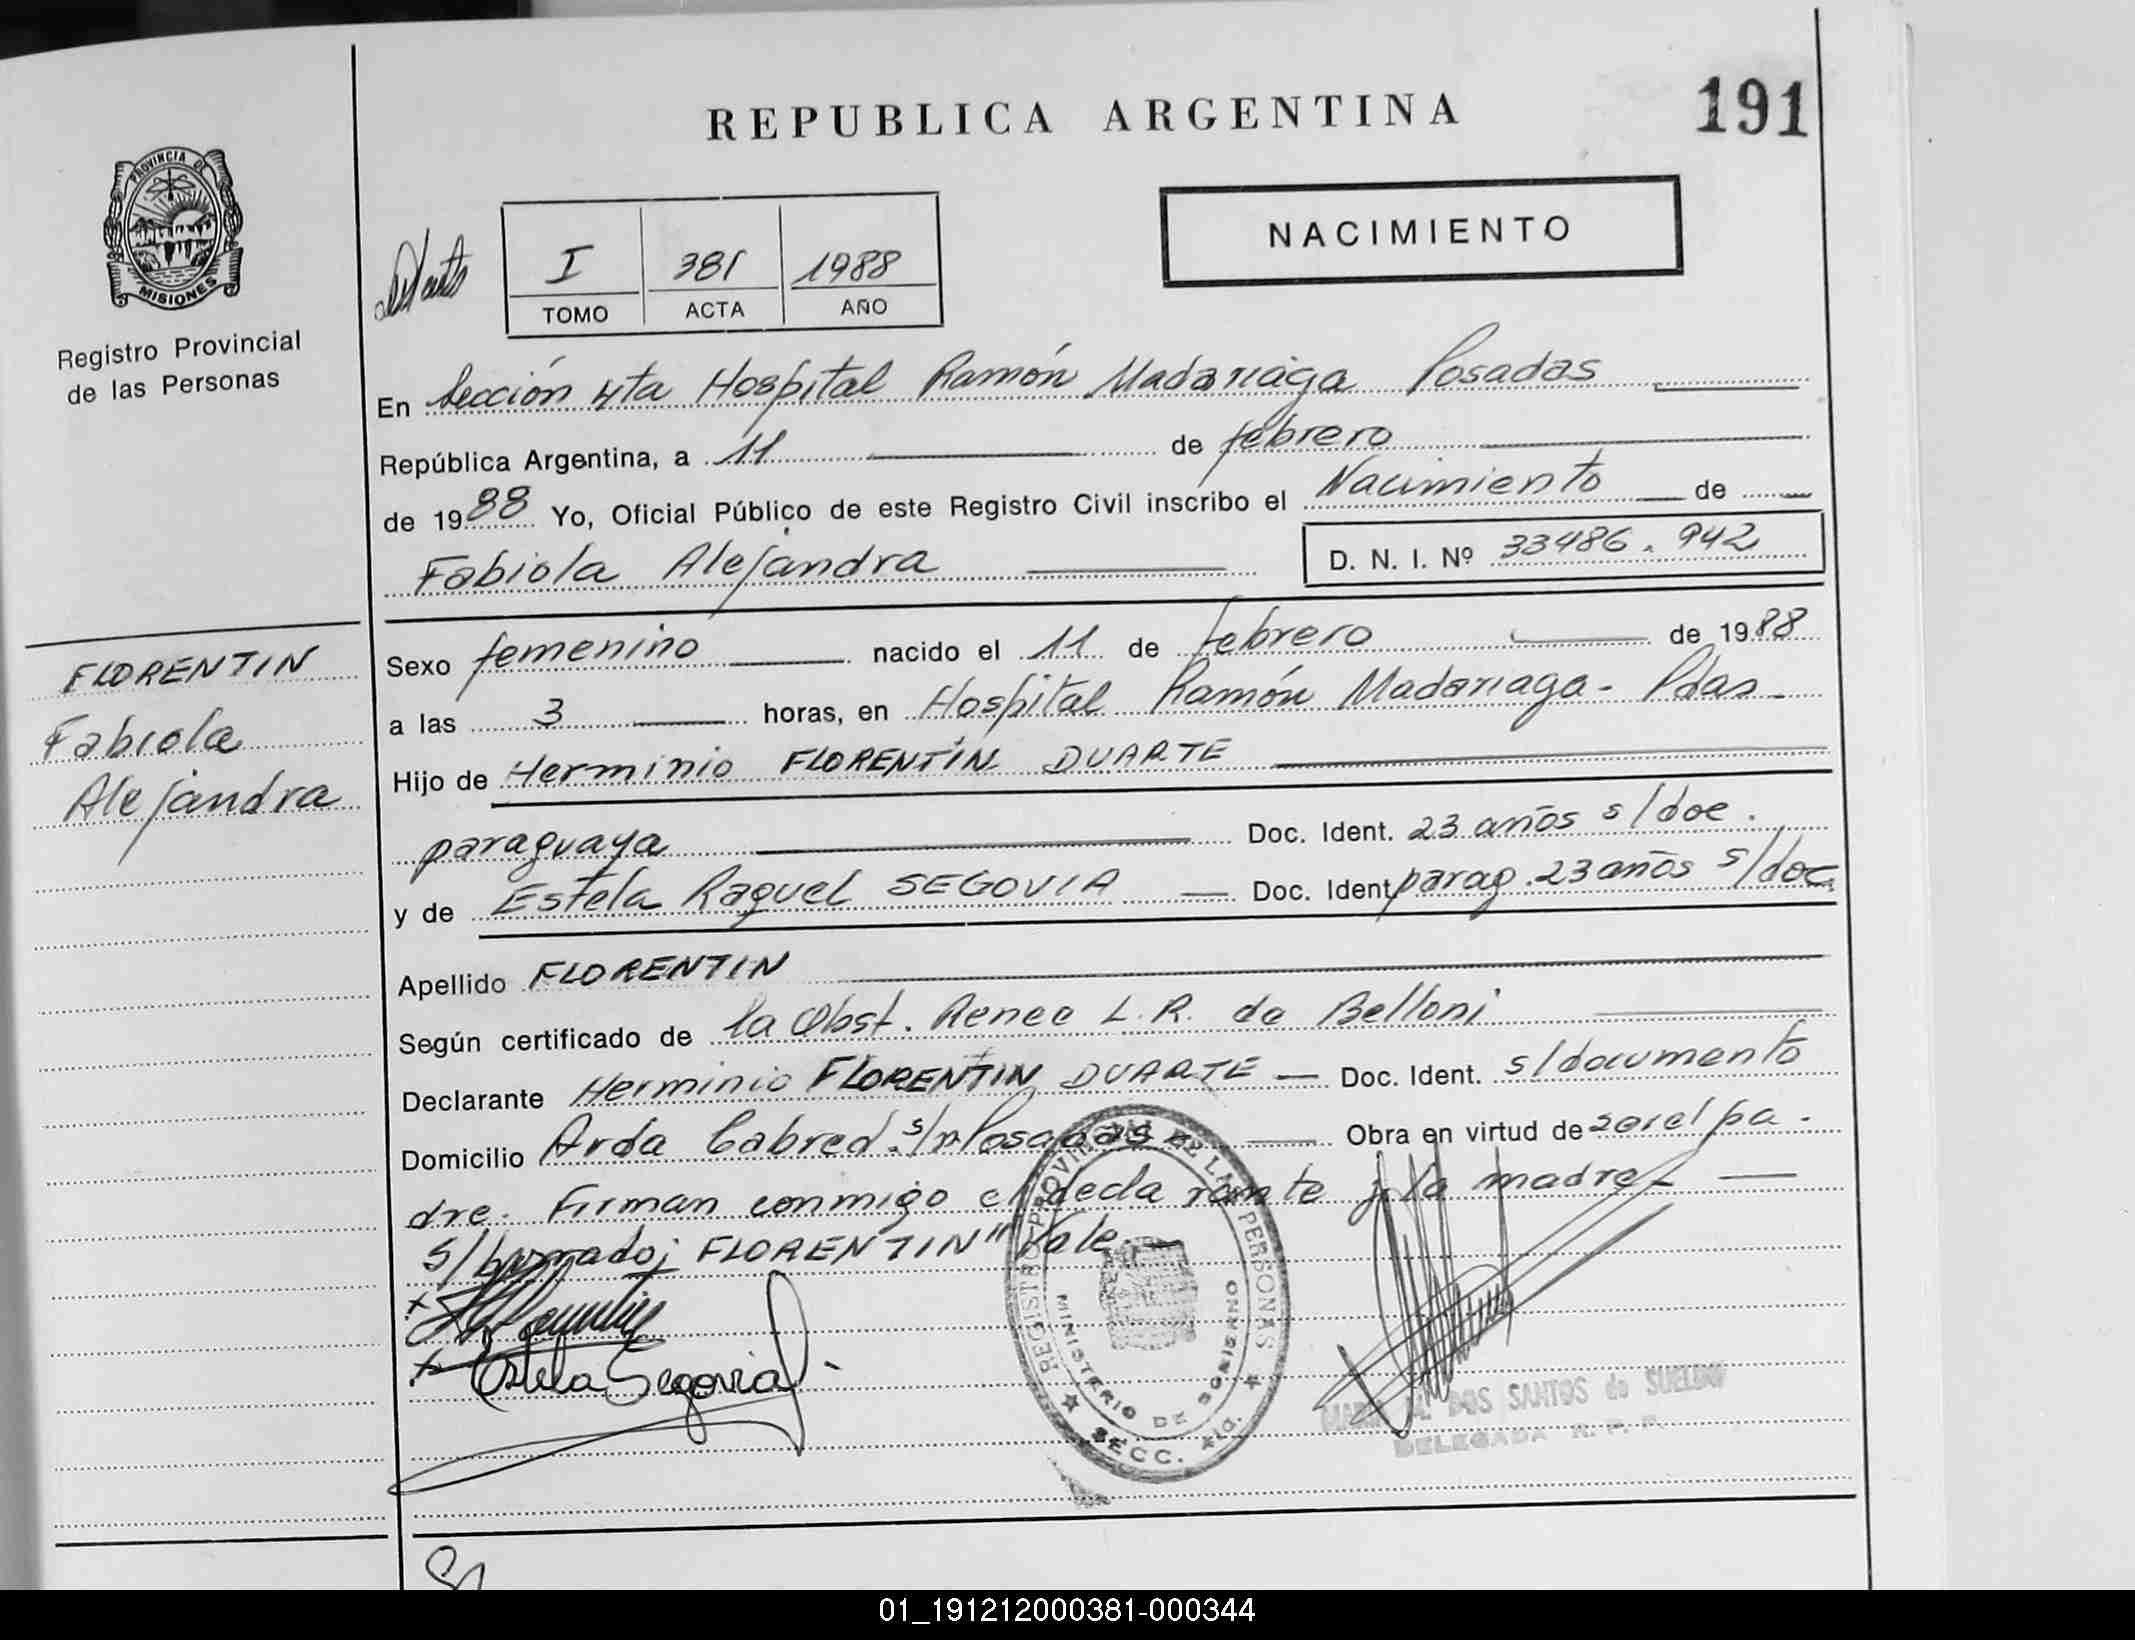 REPUBLICA ARGENTINA
191
PROVINCIA DE
MISIONES
Registro Provincial
de las Personas
NACIMIENTO
I 381 1988
TOMO ACTA AÑO
En Sección 4ta Hospital Ramón Madariaga Posadas
República Argentina, a 11 de febrero
de 1988 Yo, Oficial Público de este Registro Civil inscribo el Nacimiento de
Fabiola Alejandra D. N. I. Nº 33486.942
FLORENTIN
Fabiola
Alejandra
Sexo femenino nacido el 11 de febrero de 1988
a las 3 horas, en Hospital Ramón Madariaga - Pdas -
Hijo de Herminio FLORENTIN DUARTE
paraguaya Doc. Ident. 23 años s/doc.
y de Estela Raquel SEGOVIA Doc. Ident parag. 23 años s/doc.
Apellido FLORENTIN
Según certificado de la Obst. Renee L. R. de Belloni
Declarante Herminio FLORENTIN DUARTE — Doc. Ident. s/documento
Domicilio Avda Cabred s/n Posadas — Obra en virtud de ser el pa-
dre. Firman conmigo el declarante y la madre —
S/borrado: FLORENTIN" Vale —
Estela Segovia
REGISTRO PROVINCIAL DE LAS PERSONAS
MINISTERIO DE GOBIERNO
SECC. 4ta.
DOS SANTOS de SUELDO
DELEGADA R. P. P.
01_191212000381-000344